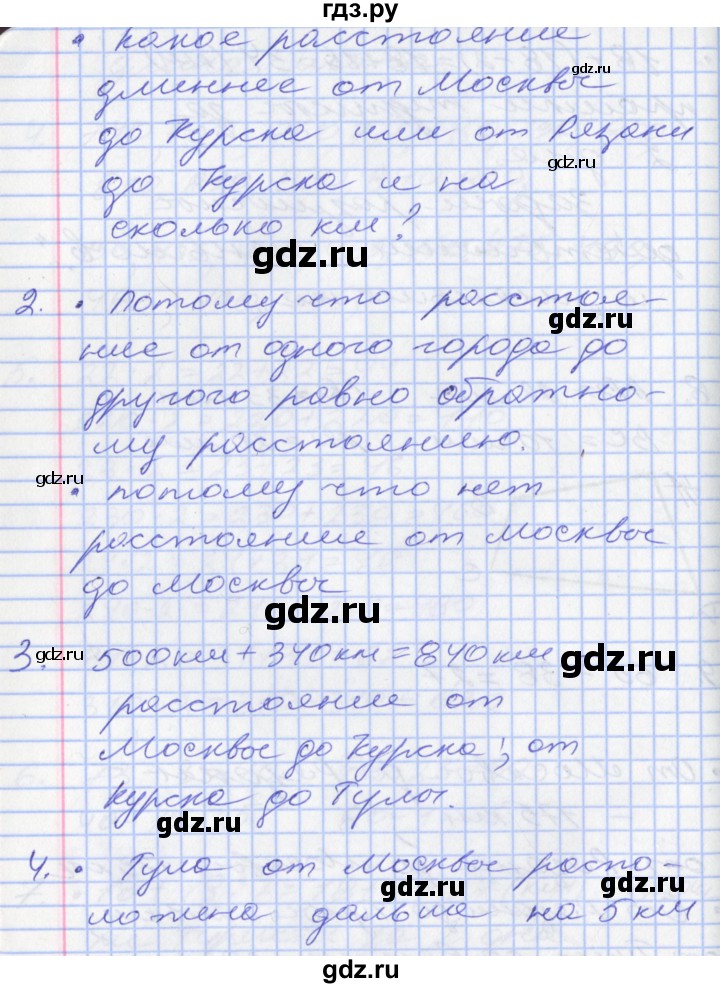 гдз.ру
• какое расстояние
gdz.ru
длиннее от Москвы
до Курска или от Рязани
gdz.ru
до Курска и на
сколько км?
gdz.ru
2. • потому что расстоя-
gdz.ru
ние от одного города до
другого равно обратно-
му расстоянию.
gdz.ru
• потому что нет
расстояние от Москвы
до Москвы
gdz.ru
3. 500км + 340км = 840км
gdz.ru
gdz.ru
расстояние от
Москвы до Курска; от
Курска до Тулы.
gdz.ru
4. • Тула от Москвы распо-
gdz.ru
gdz.ru
ложена дальше на 5 км
gdz.ru